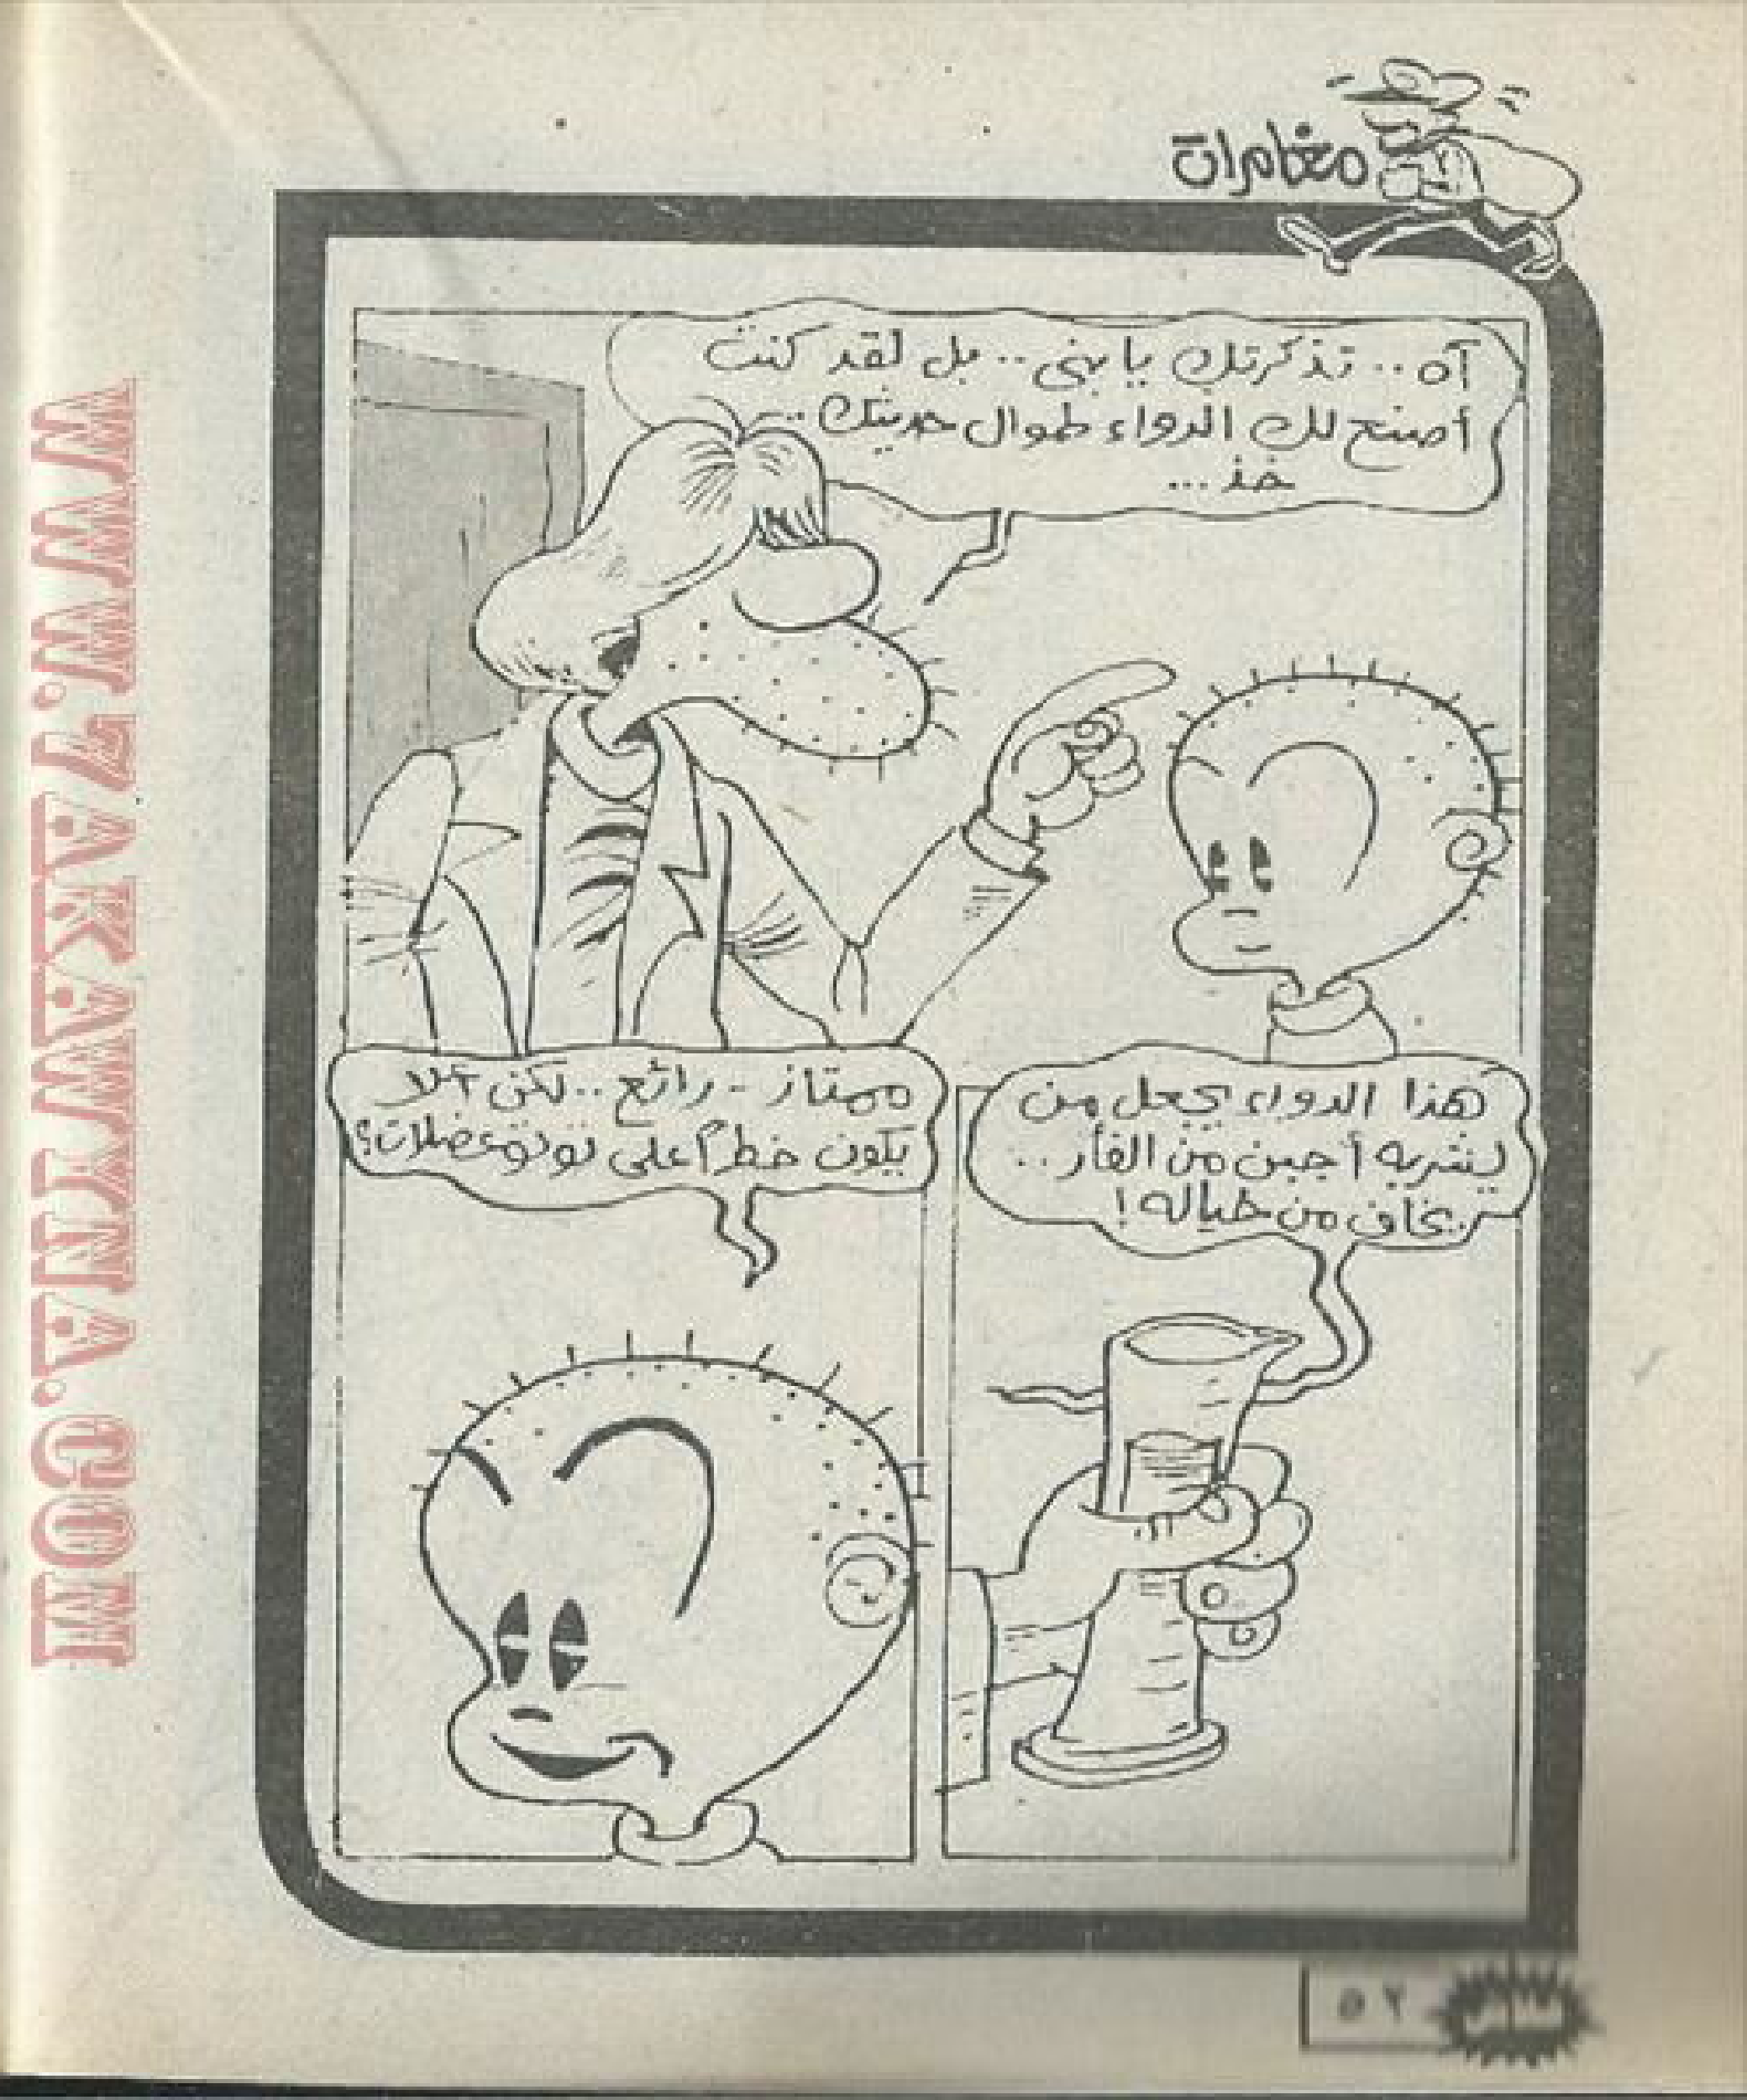 مغامرات
آه.. تذكرتك يا بني.. بل لقد كنت
أصنع لك الدواء طوال حديثك..
خذ...
هذا الدواء يجعل من
يشربه أجبن من الفأر..
يخاف من خياله!
ممتاز - رائع.. لكن ألا
يكون خطرًا على توتو عضلات؟
WWW.7AKAWINA.COM
٢٥